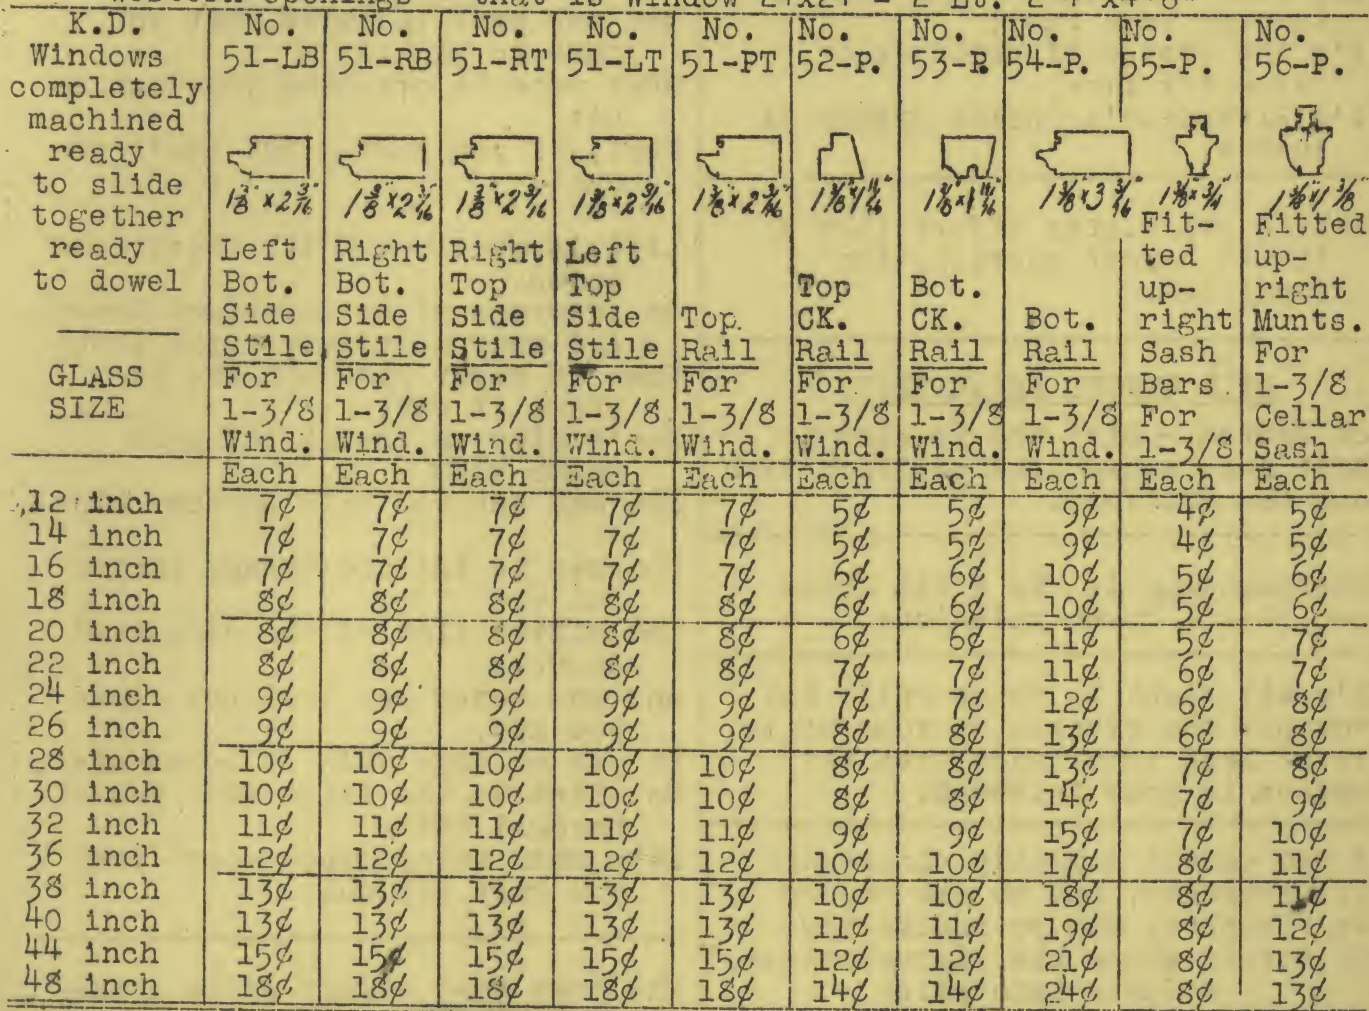 K.D. Windows completely machined ready to slide together ready to dowel
GLASS SIZE
No. 51-LB 1 3/8" x 2 3/16" Left Bot. Side Stile For 1-3/8 Wind.
No. 51-RB 1 3/8" x 2 3/16" Right Bot. Side Stile For 1-3/8 Wind.
No. 51-RT 1 3/8" x 2 3/16" Right Top Side Stile For 1-3/8 Wind.
No. 51-LT 1 3/8" x 2 3/16" Left Top Side Stile For 1-3/8 Wind.
No. 51-PT 1 3/8" x 2 3/16" Top. Rail For 1-3/8 Wind.
No. 52-P. Top CK. Rail For 1-3/8 Wind.
No. 53-P. Bot. CK. Rail For 1-3/8 Wind.
No. 54-P. 1 3/8" x 3 3/16 Bot. Rail For 1-3/8 Wind.
No. 55-P. 1 3/8" x 3/4" Fit- ted up- right Sash Bars For 1-3/8
No. 56-P. Fitted up- right Munts. For 1-3/8 Cellar Sash
Each Each Each Each Each Each Each Each Each Each
12 inch 7¢ 7¢ 7¢ 7¢ 7¢ 5¢ 5¢ 9¢ 4¢ 5¢
14 inch 7¢ 7¢ 7¢ 7¢ 7¢ 5¢ 5¢ 9¢ 4¢ 5¢
16 inch 7¢ 7¢ 7¢ 7¢ 7¢ 6¢ 6¢ 10¢ 5¢ 6¢
18 inch 8¢ 8¢ 8¢ 8¢ 8¢ 6¢ 6¢ 10¢ 5¢ 6¢
20 inch 8¢ 8¢ 8¢ 8¢ 8¢ 6¢ 6¢ 11¢ 5¢ 7¢
22 inch 8¢ 8¢ 8¢ 8¢ 8¢ 7¢ 7¢ 11¢ 6¢ 7¢
24 inch 9¢ 9¢ 9¢ 9¢ 9¢ 7¢ 7¢ 12¢ 6¢ 8¢
26 inch 9¢ 9¢ 9¢ 9¢ 9¢ 8¢ 8¢ 13¢ 6¢ 8¢
28 inch 10¢ 10¢ 10¢ 10¢ 10¢ 8¢ 8¢ 13¢ 7¢ 8¢
30 inch 10¢ 10¢ 10¢ 10¢ 10¢ 8¢ 8¢ 14¢ 7¢ 9¢
32 inch 11¢ 11¢ 11¢ 11¢ 11¢ 9¢ 9¢ 15¢ 7¢ 10¢
36 inch 12¢ 12¢ 12¢ 12¢ 12¢ 10¢ 10¢ 17¢ 8¢ 11¢
38 inch 13¢ 13¢ 13¢ 13¢ 13¢ 10¢ 10¢ 18¢ 8¢ 11¢
40 inch 13¢ 13¢ 13¢ 13¢ 13¢ 11¢ 11¢ 19¢ 8¢ 12¢
44 inch 15¢ 15¢ 15¢ 15¢ 15¢ 12¢ 12¢ 21¢ 8¢ 13¢
48 inch 18¢ 18¢ 18¢ 18¢ 18¢ 14¢ 14¢ 24¢ 8¢ 13¢